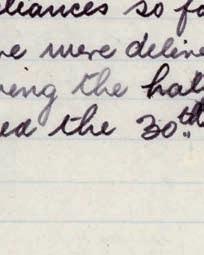 liances so fo
e were deline
ving the hal
ed the 30th